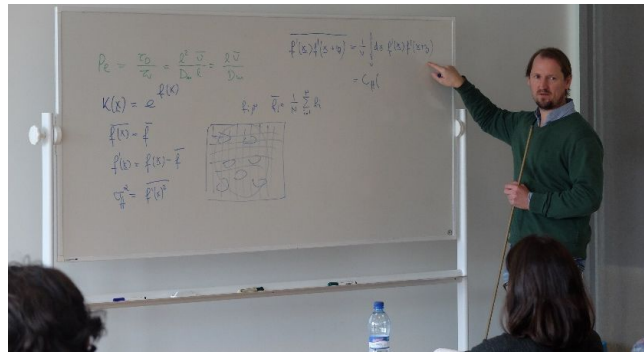 Pe = τ_D / τ_v = ℓ² / D_m · v̄ / ℓ = ℓ v̄ / D_m
K(x) = e^{f(x)}
\overline{f(x)} = \overline{f}
f'(x) = f(x) - \overline{f}
σ_f² = \overline{f'(x)²}
\overline{f'(x) f'(x+y)} = 1/V ∫_V dx f'(x) f'(x+y)
= C_ff(